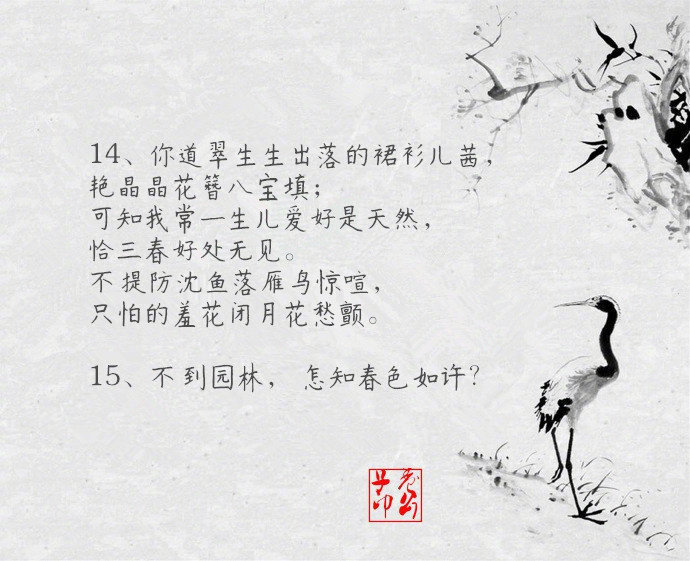 14、你道翠生生出落的裙衫儿茜，
艳晶晶花簪八宝填；
可知我常一生儿爱好是天然，
恰三春好处无见。
不提防沈鱼落雁鸟惊喧，
只怕的羞花闭月花愁颤。
15、不到园林，怎知春色如许？